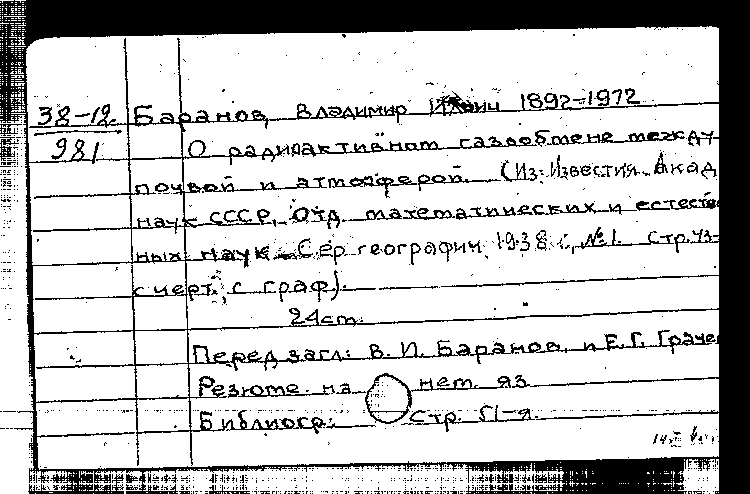 38-12. Баранов, Владимир 1892-1972
981 О радиоактивном газообмене между
почвой и атмосферой. (Из: Известия Акад
наук СССР, Отд. математических и естеств
ных наук. Сер географич, 1938 г., №1. Стр. 43-
с черт., с граф).
24cm.
Перед загл: В. И. Баранов, и Е.Г. Граче
Резюме на нем. яз
Библиогр: стр. 51-я.